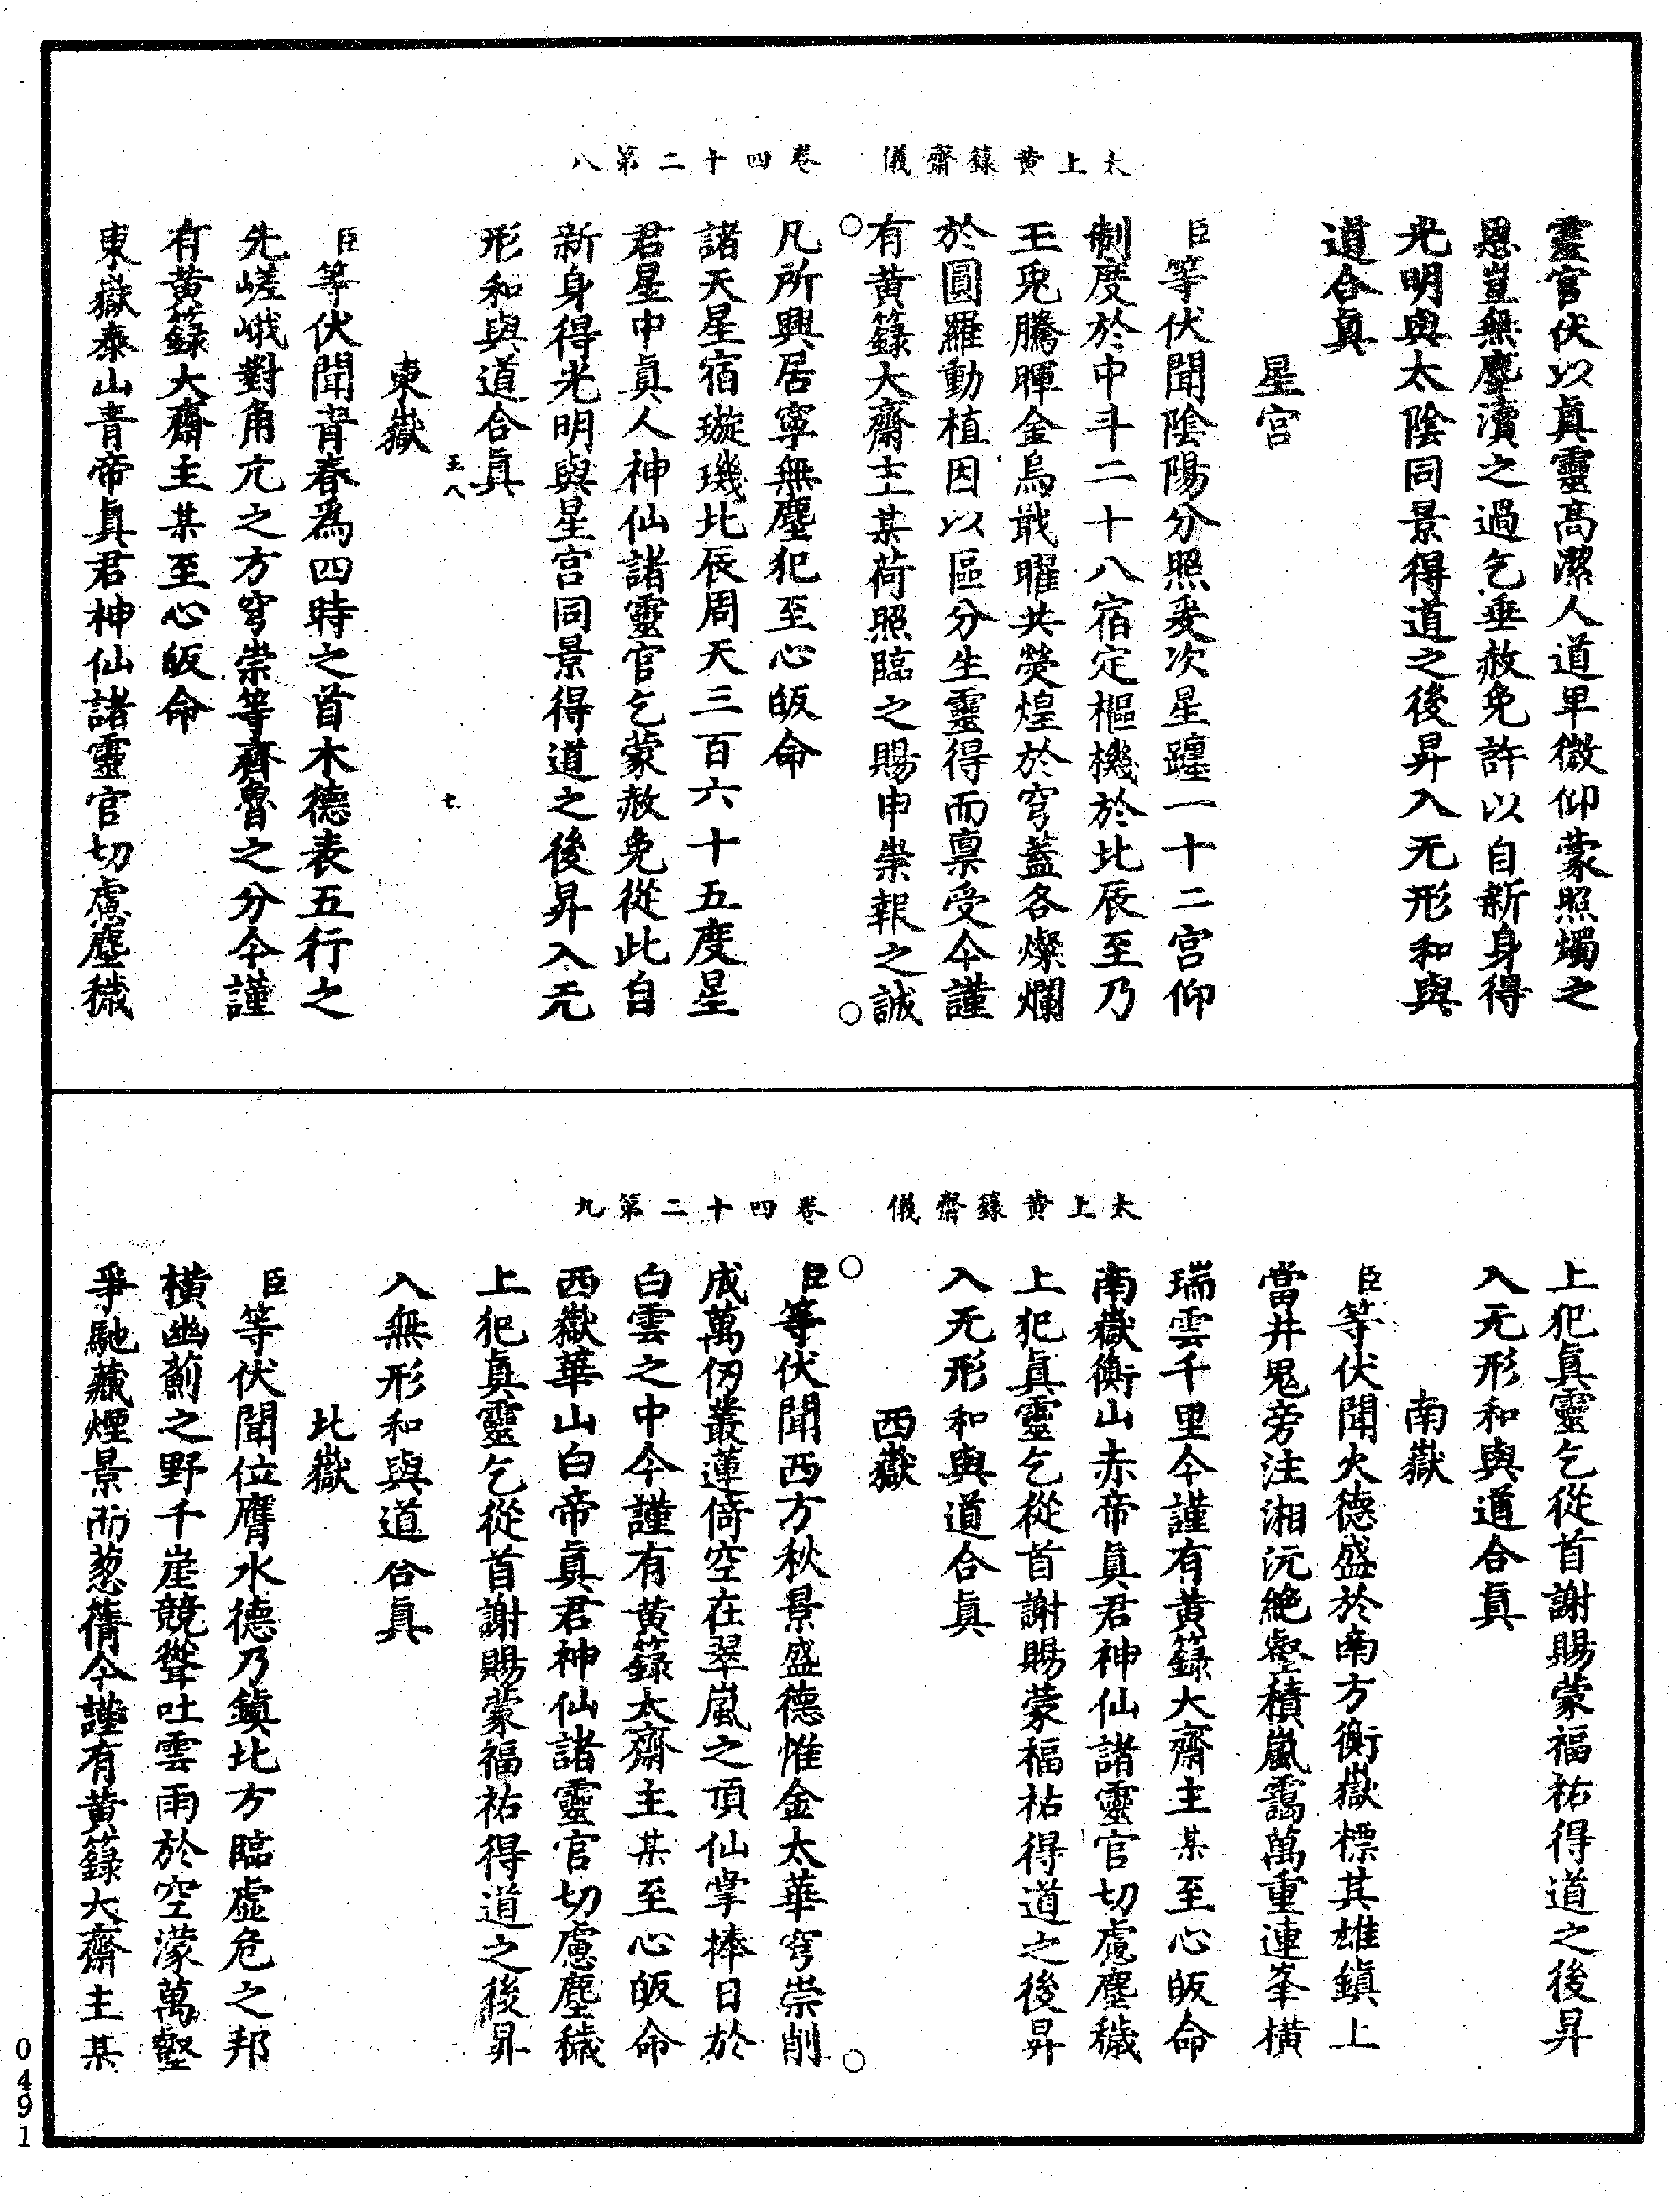 太上黃籙齋儀　卷四十二第八
靈官伏以真靈高潔人道卑微仰蒙照燭之
恩豈無塵瀆之過乞垂赦免許以自新身得
光明與太陰同景得道之後昇入无形和與
道合真
星宫
臣等伏聞陰陽分照爰次星躔一十二宫仰
制度於中斗二十八宿定樞機於北辰至乃
玉兎騰暉金烏戢曜共熒煌於穹蓋各燦爛
於圓羅動植因以區分生靈得而禀受今謹
有黃籙大齋主某荷照臨之賜申崇報之誠
凡所興居寧無塵犯至心皈命
諸天星宿璇璣北辰周天三百六十五度星
君星中真人神仙諸靈官乞蒙赦免從此自
新身得光明與星宫同景得道之後昇入无
形和與道合真
王八　七
東嶽
臣等伏聞青春為四時之首木德表五行之
先嵯峨對角亢之方穹崇等齊魯之分今謹
有黃籙大齋主某至心皈命
東嶽泰山青帝真君神仙諸靈官切慮塵穢
太上黃籙齋儀　卷四十二第九
上犯真靈乞從首謝賜蒙福祐得道之後昇
入无形和與道合真
南嶽
臣等伏聞火德盛於南方衡嶽標其雄鎮上
當井鬼旁注湘沅絶壑積嵐靄萬重連峯橫
瑞雲千里今謹有黃籙大齋主某至心皈命
南嶽衡山赤帝真君神仙諸靈官切慮塵穢
上犯真靈乞從首謝賜蒙福祐得道之後昇
入无形和與道合真
西嶽
臣等伏聞西方秋景盛德惟金太華穹崇削
成萬仞叢蓮倚空在翠嵐之頂仙掌捧日於
白雲之中今謹有黃籙大齋主某至心皈命
西嶽華山白帝真君神仙諸靈官切慮塵穢
上犯真靈乞從首謝賜蒙福祐得道之後昇
入無形和與道合真
北嶽
臣等伏聞位膺水德乃鎮北方臨虛危之邦
橫幽薊之野千崖競聳吐雲雨於空濛萬壑
爭馳藏煙景而葱蒨今謹有黃籙大齋主某
0491